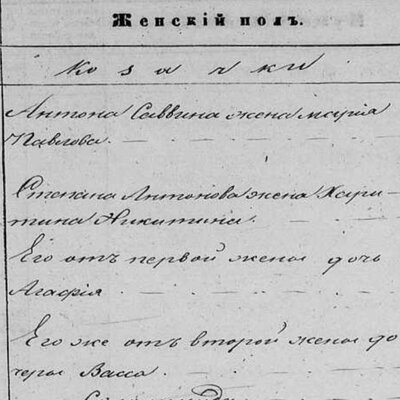 Женскій полъ.
Козачки
Антона Саввина жена Марія
Павлова.
Степана Антонова жена Хари-
тина Никитина.
Его отъ первой жены дочь
Агафія.
Его же отъ второй жены до
черы Васса.